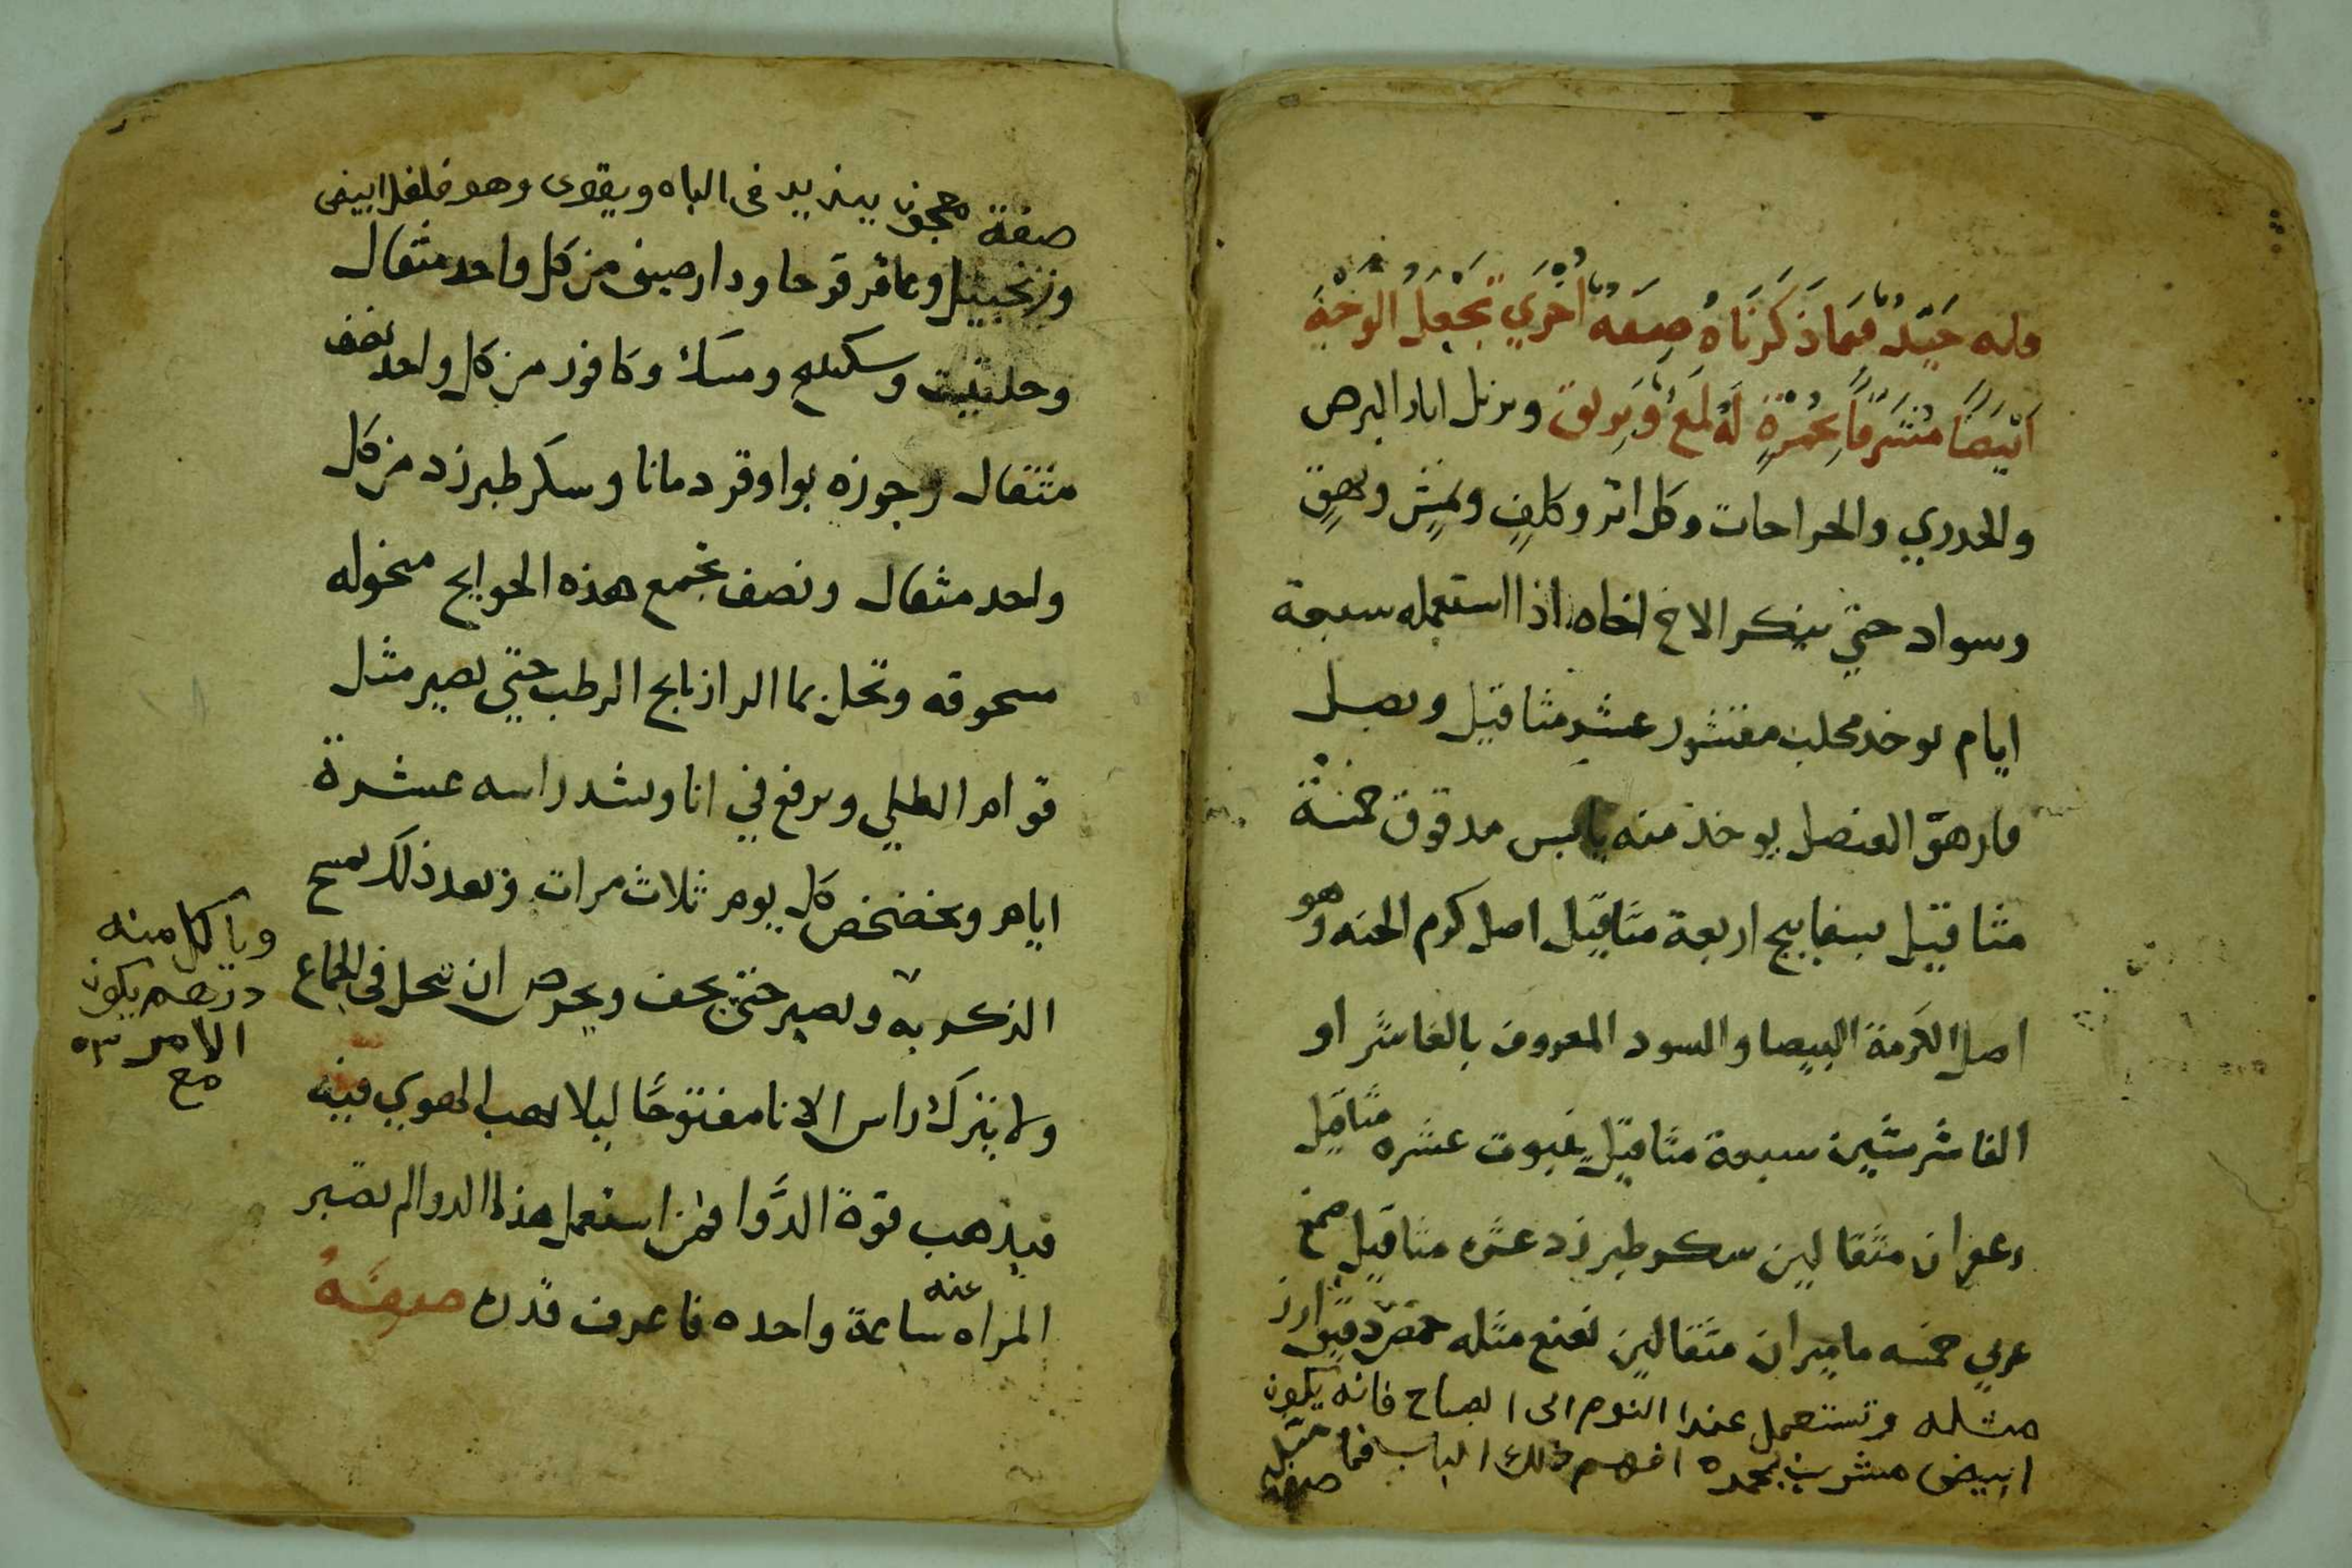 وله جيّد فيما ذكرناه صفه اخري تجعل الوجه
ابيضا مشرقا بحمرة له لمع وبريق ويزيل اثار البرص
والجدري والجراحات وكل اثر وكلف ونمش وبهق
وسواد حتي ينكر الاخ اخاه اذا استعمله سبعة
ايام يوخد محلب مقشور عشر مثاقيل وبصل
فار هو العنصل يوخذ منه يابس مدقوق خمسة
مثاقيل بسفايج اربعة مثاقيل اصل كرم الحنه وهو
اصل الكرمة البيضا والسود المعروف بالفاشر او
الفاشرشين سبعة مثاقيل غبوت عشره مثاقيل
زعفران مثقالين سكر طبرزد عشره مثاقيل صمغ
عربي خمسه ماميران مثقالين نعنع مثله حمص دقيق ارز
مثله وتستعمل عندا النوم الى الصباح فانه يكون
ابيض مشرب بحمره افهم ذلك الباب فما قبل
صفه
صفة معجون يزيد فى الباه ويقوى وهو فلفل ابيض
وزنجبيل وعاقر قرحا ودارصينى من كل واحد مثقال
وحلتيت وسكبينج ومسك وكافور من كل واحد نصف
مثقال وجوزه بوا وقردمانا وسكر طبرزد من كل
واحد مثقال ونصف تجمع هذه الحوايج منخوله
مسحوقه وتحل بما الرازيانج الرطب حتي يصير مثل
قوام الطلي ويرفع في انا ويشد راسه عشرة
ايام ويخضخض كل يوم ثلاث مرات وبعد ذلك يمسح
الذكر به ويصبر حتى يجف ويحرص ان يحل فى الجماع
ولا يترك راس الانا مفتوحًا ليلا يهب الهوي فيه
فيذهب قوة الدّوا فمن استعمل هذا الدوا لم تصبر
المراه عنه ساعة واحده فاعرف قدره صفة
وياكل منه
درهم يكون
الامر
مع